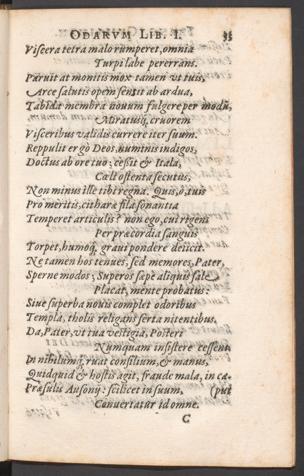 ODARVM LIB. I. 35
Viscera tetra malo rumperet, omnia
Turpi labe pererrans.
Paruit at monitis mox tamen vt tuis,
Arce salutis opem sensit ab ardua,
Tabida membra nouum fulgere per modū,
Miratusq́; cruorem
Visceribus validis currere iter suum.
Reppulit ergò Deos, numinis indigos,
Doctus ab ore tuo; cessit & Itala,
Cælt ostenta secutus,
Non minus ille tibi regna. Quis, ô, tuis
Pro meritis, citharæ fila sonantia
Temperet articulis? non ego, cui rigens
Per præcordia sanguis
Torpet, humoq́; graui pondere deiicit.
Ne tamen hos tenues, sed memores, Pater,
Sperne modos; Superos sæpè aliquis sale
Placat, mente probatus:
Siue superba nouis complet odoribus
Templa, tholis religans serta nitentibus.
Da, Pater, vt tua vestigia, Posteri
Numquam insistere cessent.
In nihilumq́; ruat consilium, & manus,
Quidquid & hostis agit, fraude mala, in ca-
Præsulis Ausonij: scilicet in suum, (put
Conuertatur id omne.
C